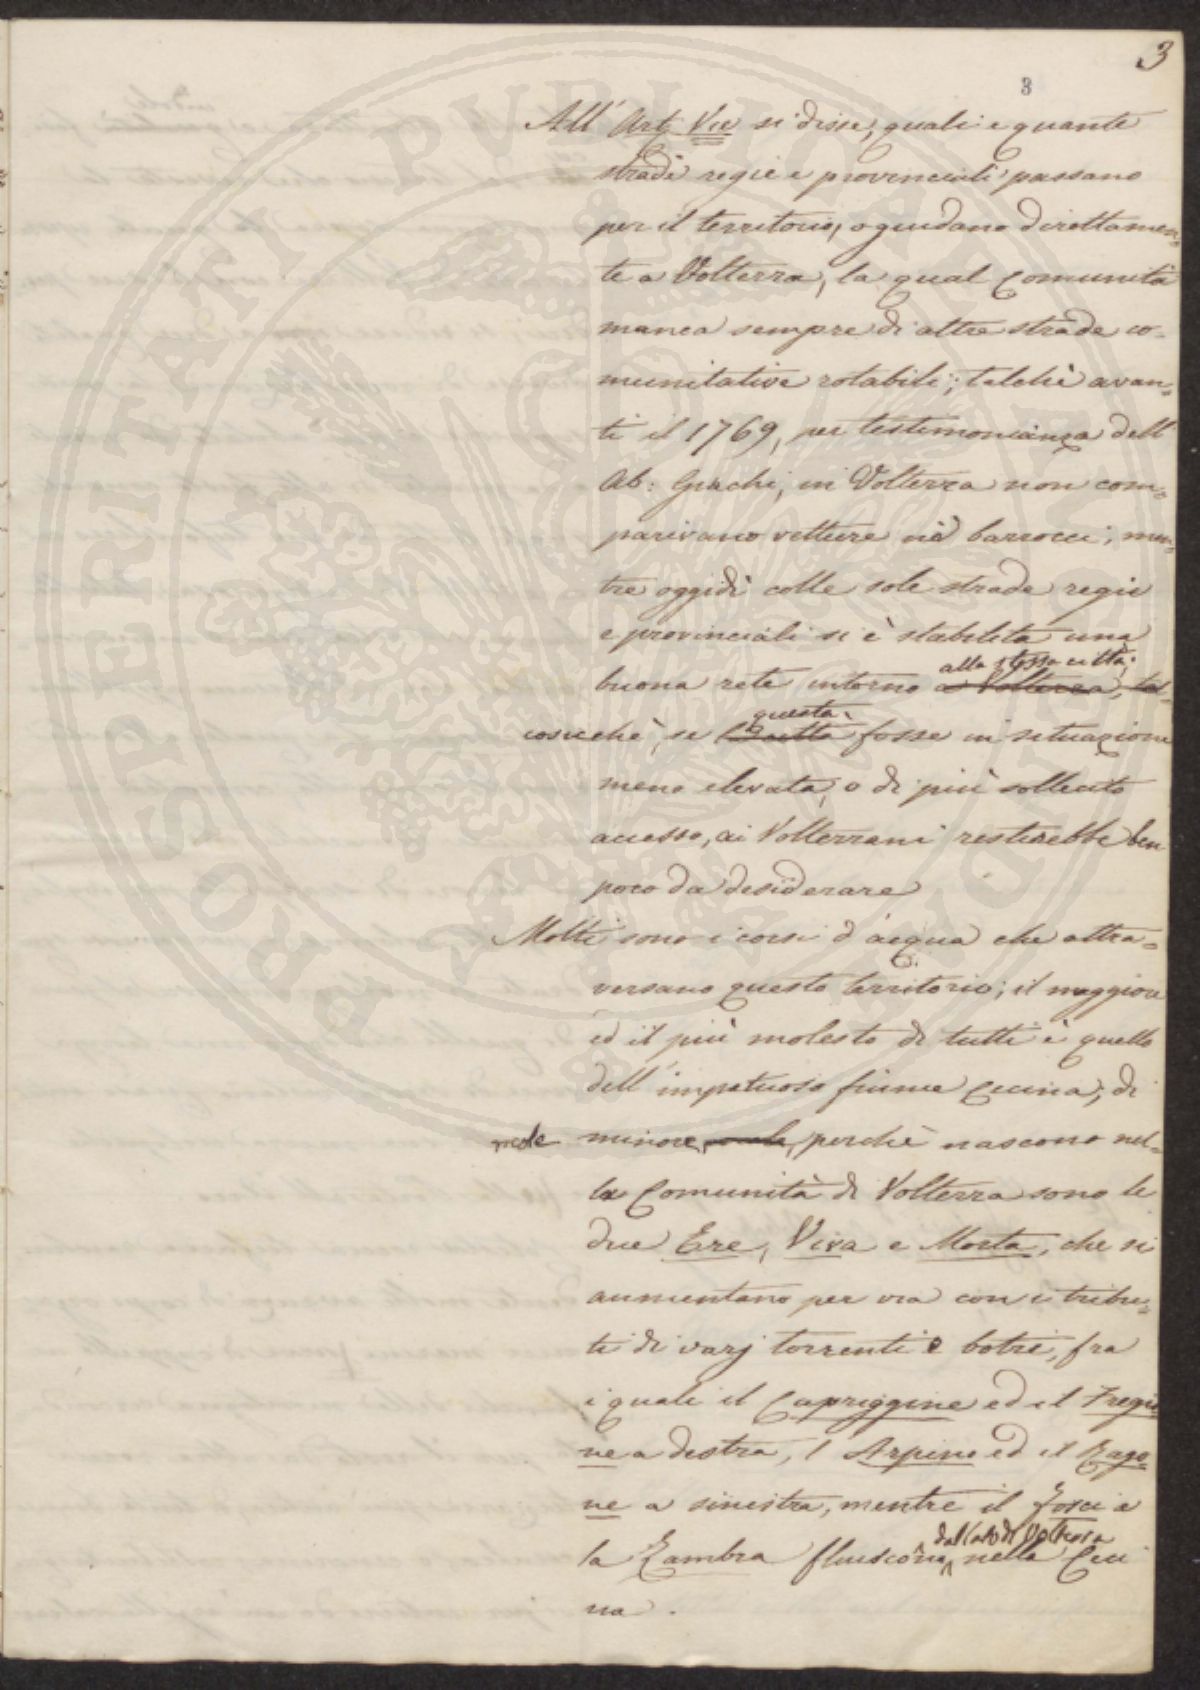 3
3
All' Art. Vie si disse, quali e quante
strade regie e provinciali passano
per il territorio, o guidano direttamen=
te a Volterra, la qual Comunità
manca sempre di altre strade co-
munitative rotabili; talchè avan=
ti il 1769, per testimonianza dell'
Ab: Giachi, in Volterra non com=
parivano vetture nè barrocci; men=
tre oggidì colle sole strade regie
e provinciali si è stabilita una
buona rete intorno a Volterra, tal- alla stessa città;
cosicchè, se questa fosse in situazione
meno elevata, o di più sollecito
accesso, ai Volterrani resterebbe ben
poco da desiderare
Molti sono i corsi d'acqua che attra=
versano questo territorio; il maggiore
ed il più molesto di tutti è quello
dell'impetuoso fiume Cecina; di
mole minore, perchè nascono nel=
la Comunità di Volterra sono le
due Ere, Viva e Morta, che si
aumentano per via con i tribu=
ti di varj torrenti e botri, fra
i quali il Capriggine ed il Fregio
ne a destra, l'Arpino ed il Rago=
ne a sinistra, mentre il Fosci e
la Zambra fluiscono dal lato di Volterra nella Ceci
na.
PROSPERITATI PVBLICAE